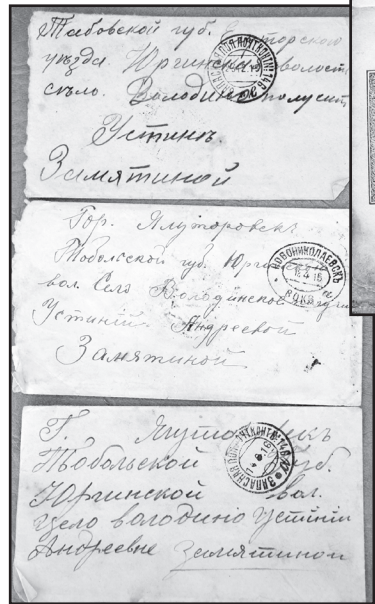 Тобовской губ.
уѣзда Юргинская волость
съло. Володино получит
Устинь
Замятиной
Гор. Ялуторовскъ
Тобольской губ. Юрги
вол. Село Володинское
Устиніи Андреевой
Замятиной
НОВОНИКОЛАЕВСКЪ
Г.
Тобольской губ.
Юргинской вол.
Цело володино Устініи
Андреевне Замятиной